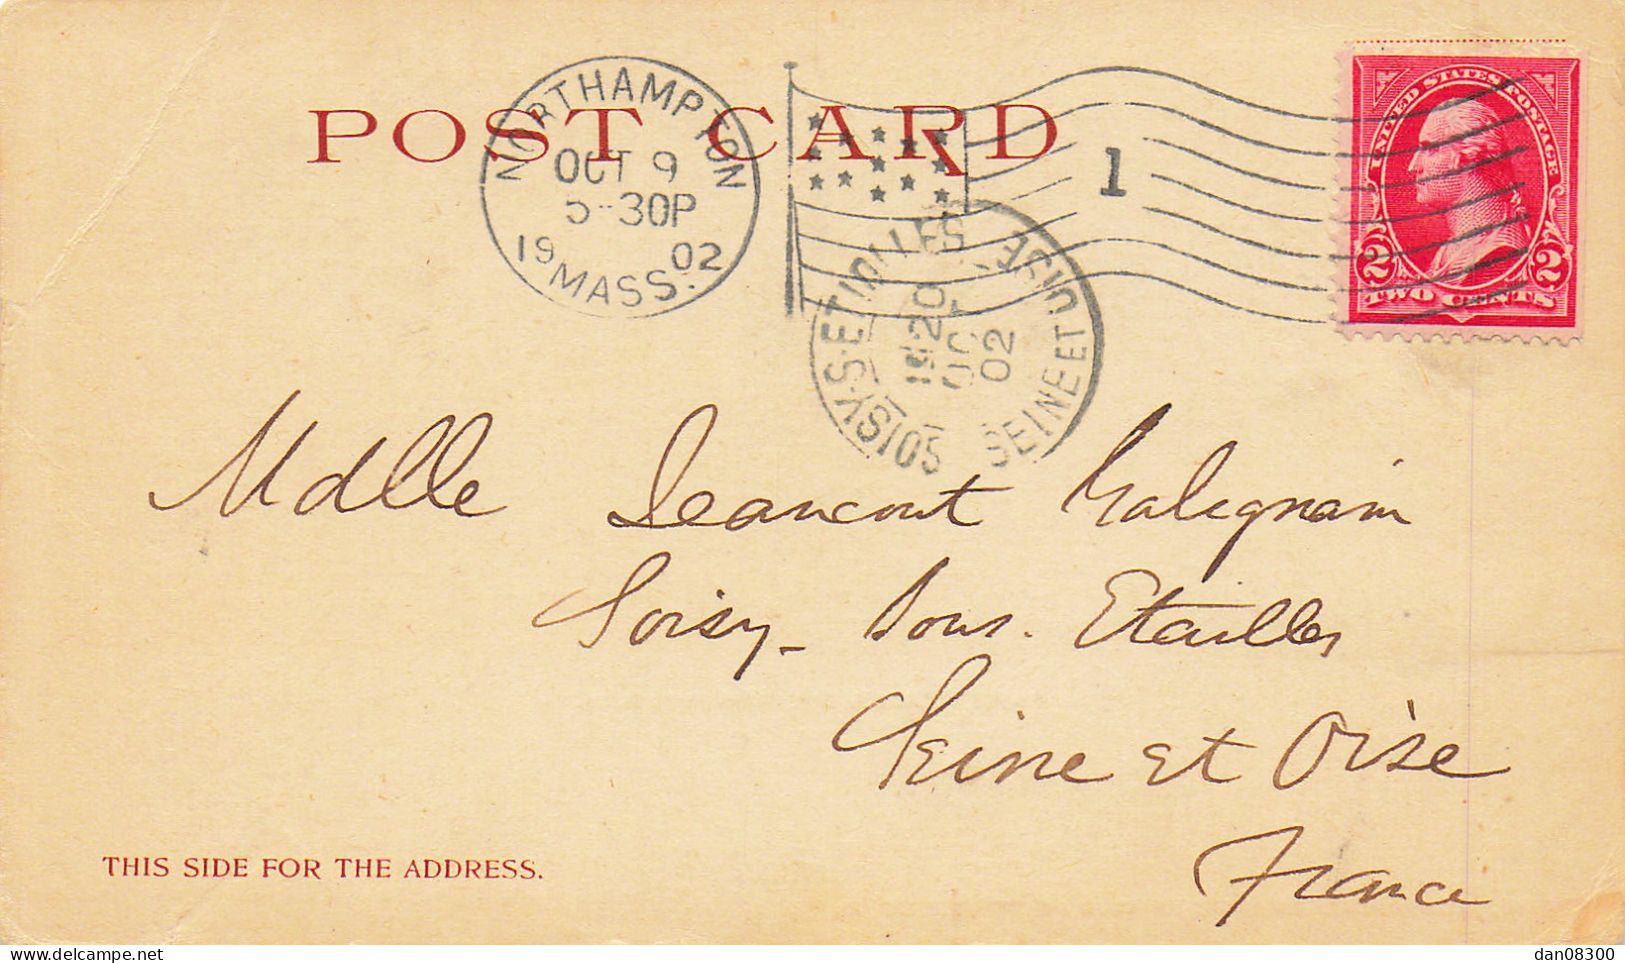 POST CARD
NORTHAMPTON
OCT 9
5-30P
19 02
MASS.
1
UNITED STATES POSTAGE
2 2
TWO CENTS
SOISY-S-ETIOLLES
SEINE ET OISE
20
OCT
02
Mdlle Jeancourt Galignani
Soisy-Sous. Etiolles
Seine et Oise
France
THIS SIDE FOR THE ADDRESS.
delcampe.net
dan08300